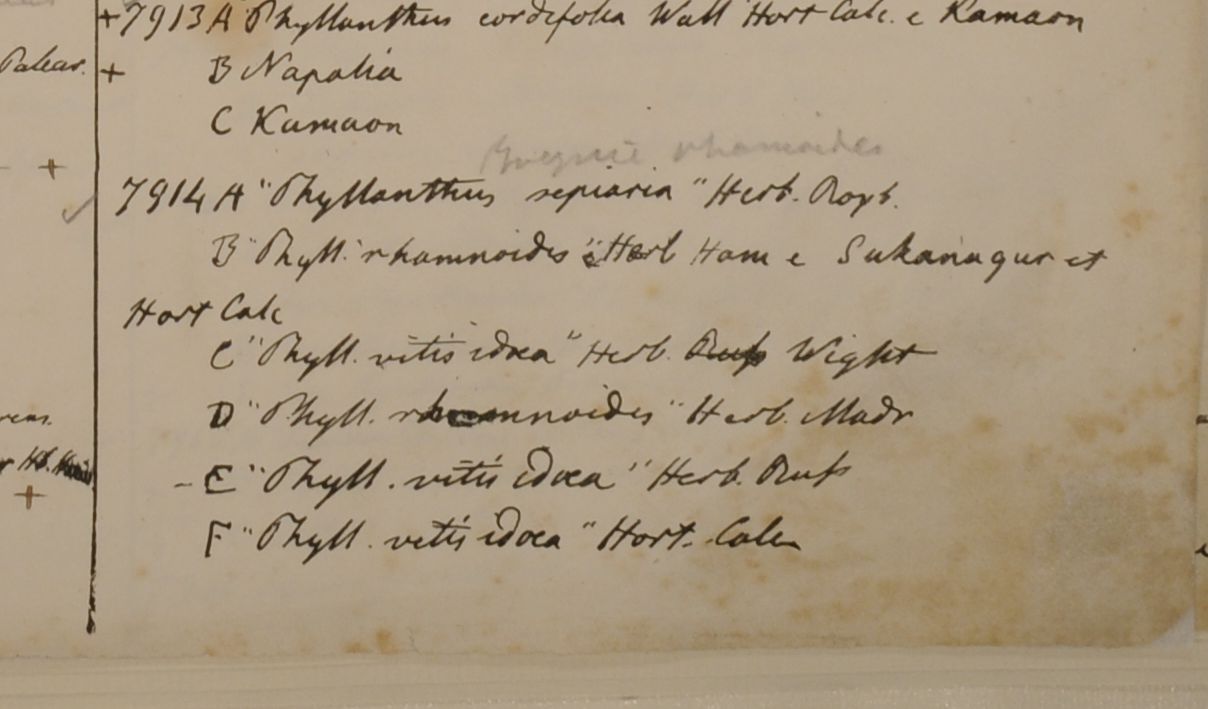 Palear.
+7913 A "Phyllanthus cordifolia Wall Hort Calc. e Kamaon
+ B Napalia
C Kamaon
rhamnoides
7914 A "Phyllanthus sepiaria" Herb. Roxb.
B "Phyll. rhamnoides" Herb Ham e Sukanagur et
Hort Calc
C "Phyll. vitis idoea" Herb. Wight
D "Phyll. rhamnoides" Herb. Madr
E "Phyll. vitis idoea" Herb. Russ
F "Phyll. vitis idoea" Hort. Calc